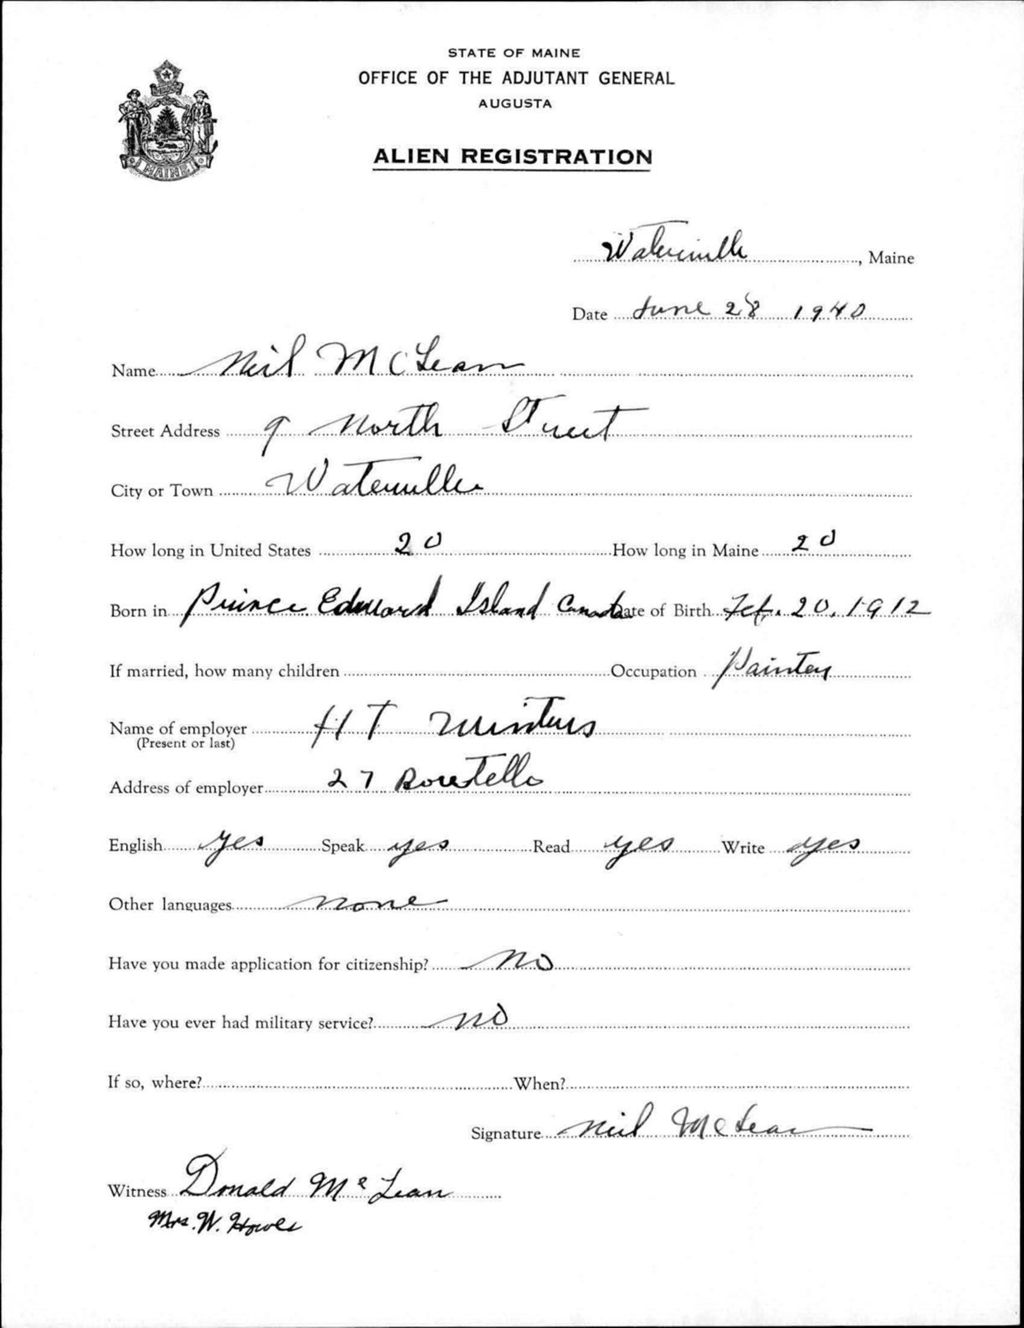 STATE OF MAINE
OFFICE OF THE ADJUTANT GENERAL
AUGUSTA
ALIEN REGISTRATION
MAINE
Waterville, Maine
Date June 28 1940
Name Neil McLean
Street Address 9 North Street
City or Town Waterville
How long in United States 20 How long in Maine 20
Born in Prince Edward Island Canada Date of Birth Feb. 20, 1912
If married, how many children Occupation Painter
Name of employer H T Winters
(Present or last)
Address of employer 27 Boutelle
English yes Speak yes Read yes Write yes
Other languages none
Have you made application for citizenship? No
Have you ever had military service? no
If so, where? When?
Signature Neil McLean
Witness Donald McLean
Mrs. W.